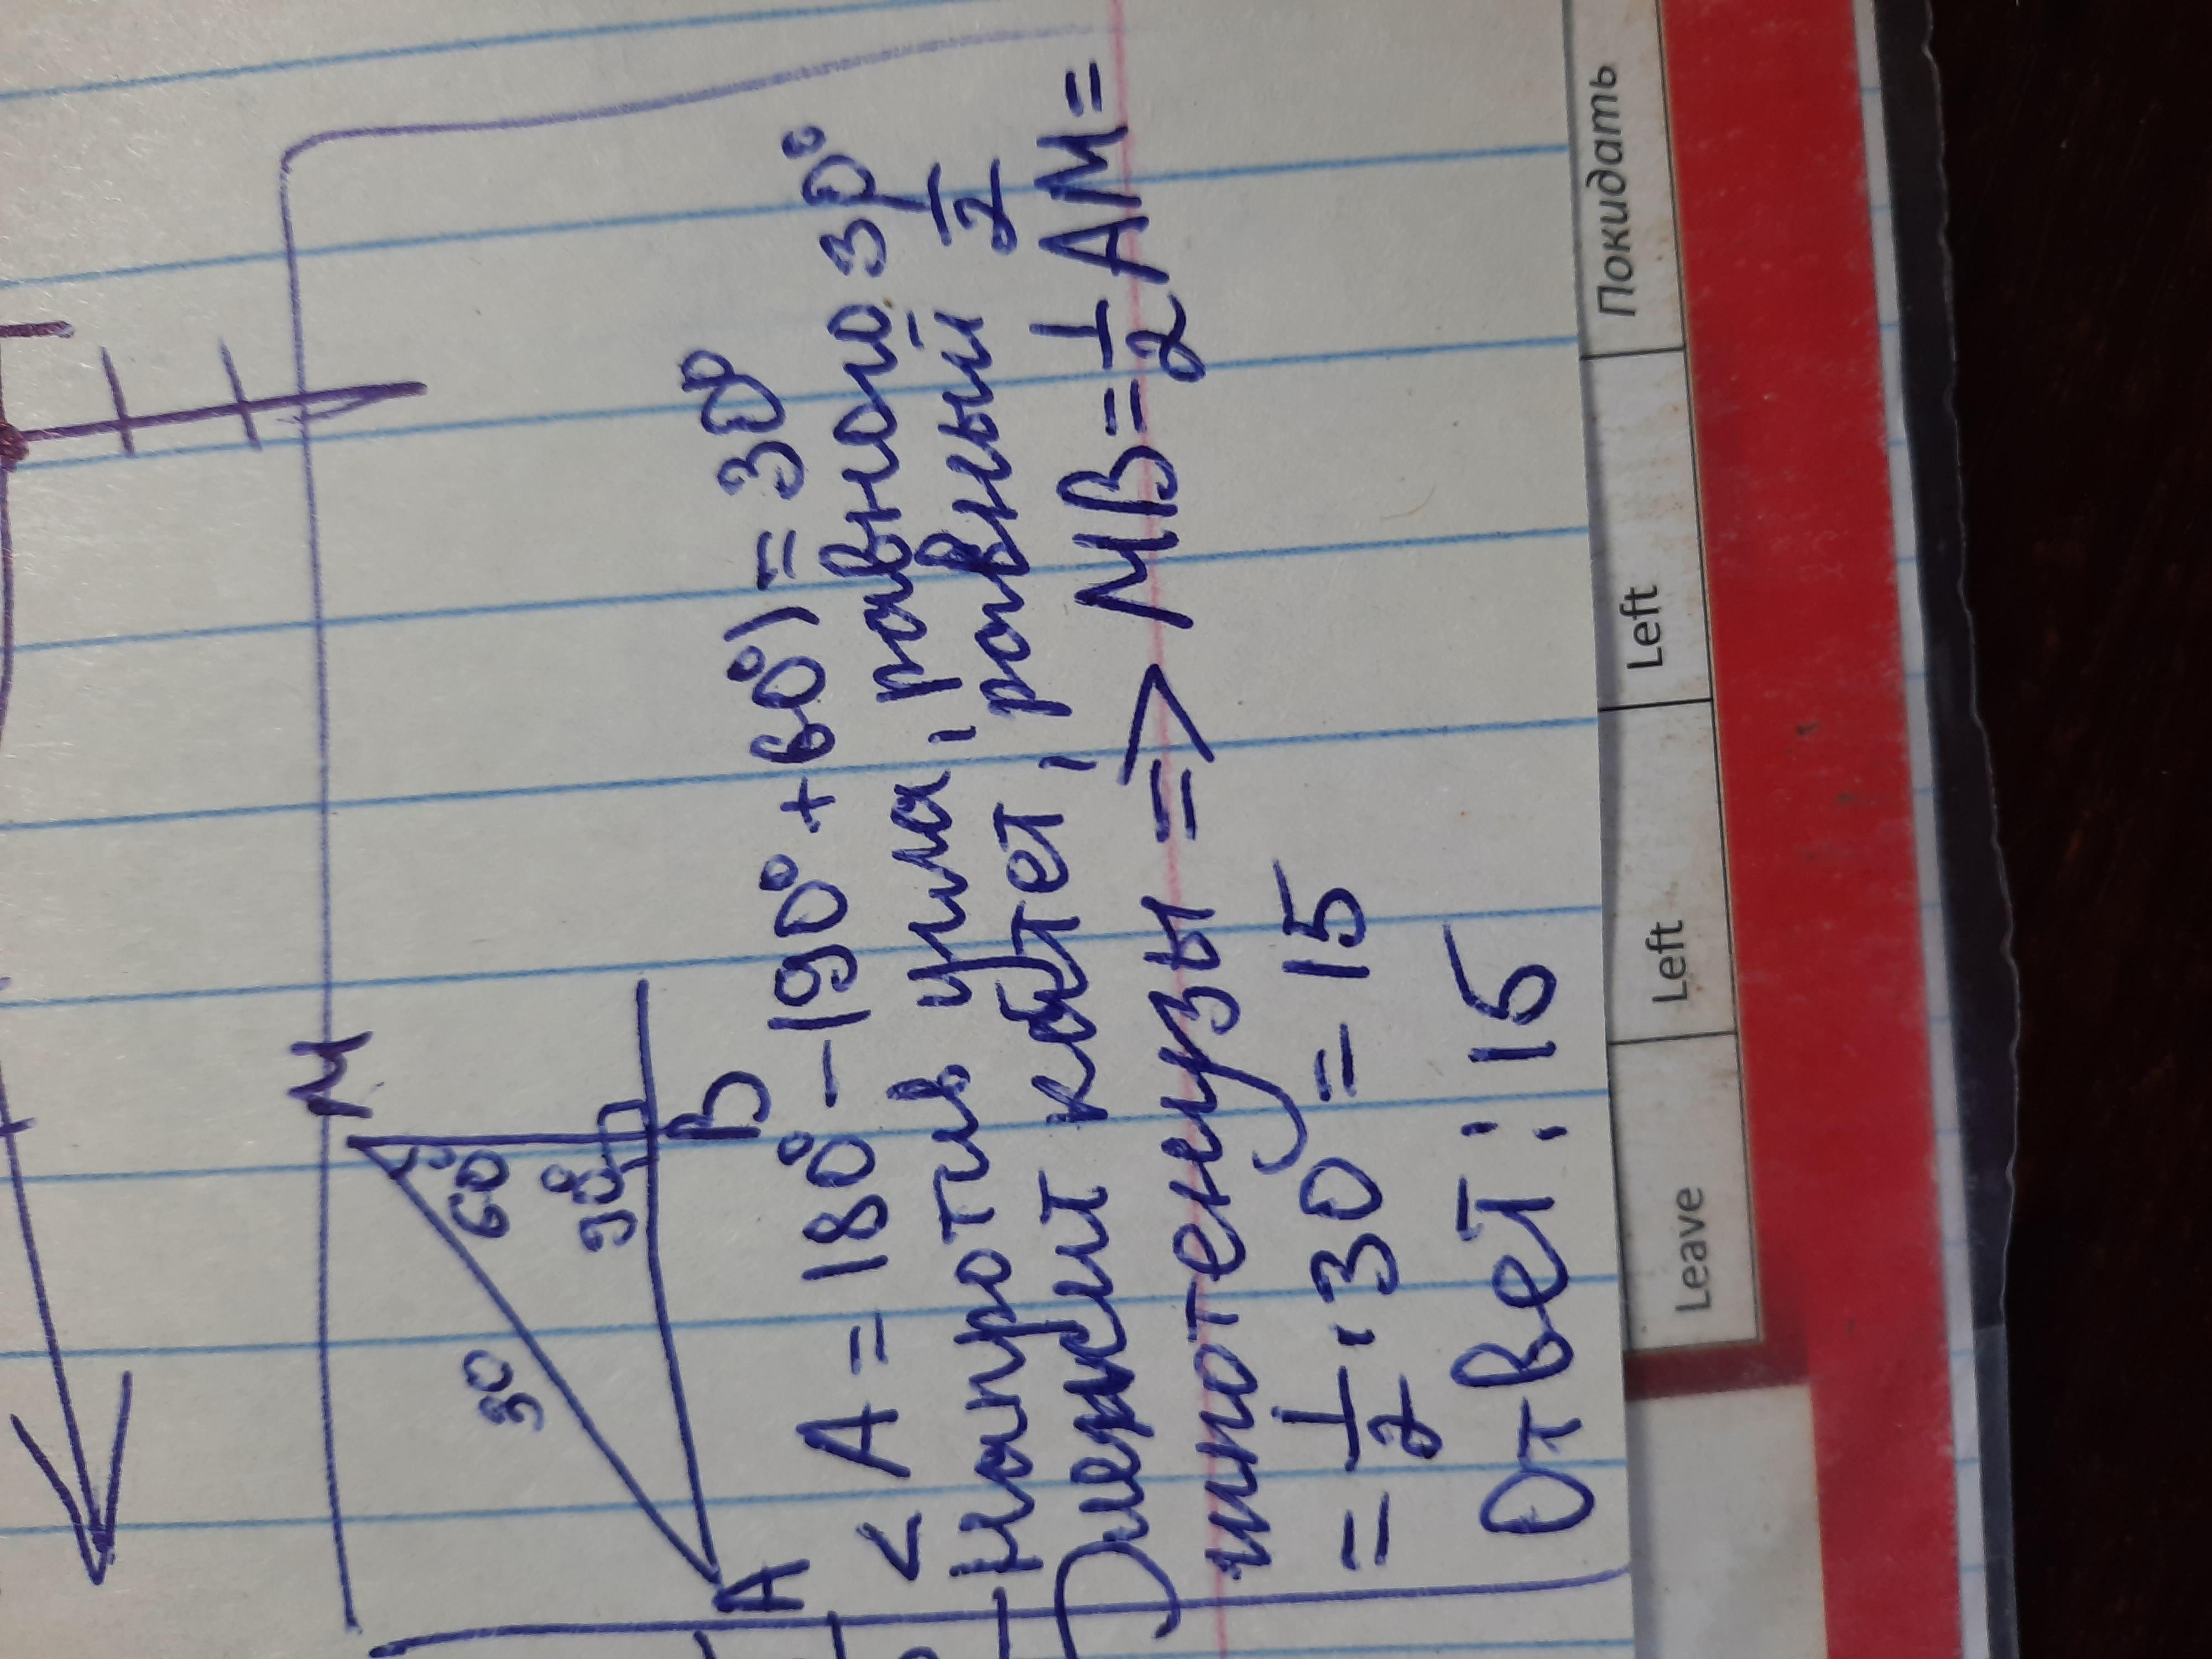 M
60°
30
90°
A
B
< A = 180° - (90° + 60°) = 30°
Напротив угла, равного 30°
лежит катет, равный 1/2
гипотенузы => MB = 1/2 AM =
= 1/2 · 30 = 15
Ответ: 15
Leave Left Left Покидать